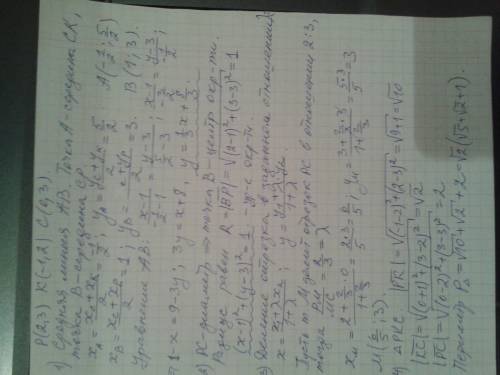 P(2,3) K(-1,2) C(0,3)
1) Средняя линия AB. Точка A-середина CK,
точка B-середина CP.
x_A = (x_C+x_K)/2 = -1/2; y_A = (y_C+y_K)/2 = 5/2 A(-1/2; 5/2)
x_B = (x_C+x_P)/2 = 1; y_B = (y_C+y_P)/2 = 3. B(1; 3).
Уравнение AB: (x-1)/(-1/2-1) = (y-3)/(5/2-3); (x-1)/(-3/2) = (y-3)/(-1/2);
1-x=9-3y; 3y=x+8, y=1/3x+8/3.
2) PC-диаметр ⇒ точка B-центр окр-ти.
Радиус равен R=|BP|=√((2-1)²+(3-3)²)=1
(x-1)²+(y-3)²=1 -ур-е окр-ти.
3) Деление отрезка в заданном отношении:
x = (x₁+λx₂)/(1+λ); y = (y₁+λy₂)/(1+λ)
Пусть т. M делит отрезок PC в отношении 2:3,
тогда = 2/3 = λ
x_M = (2+2/3·0)/(1+2/3) = 2·3/5 = 6/5; y_M = (3+2/3·3)/(1+2/3) = 5·3/5 = 3
M(6/5; 3).
4) ΔPKC |PK|=√((-1-2)²+(2-3)²)=√(9+1)=√10
|KC|=√((0+1)²+(3-2)²)=√2
|PC|=√((0-2)²+(3-3)²)=2
Периметр P_Δ=√10+√2+2=√2(√5+√2+1).